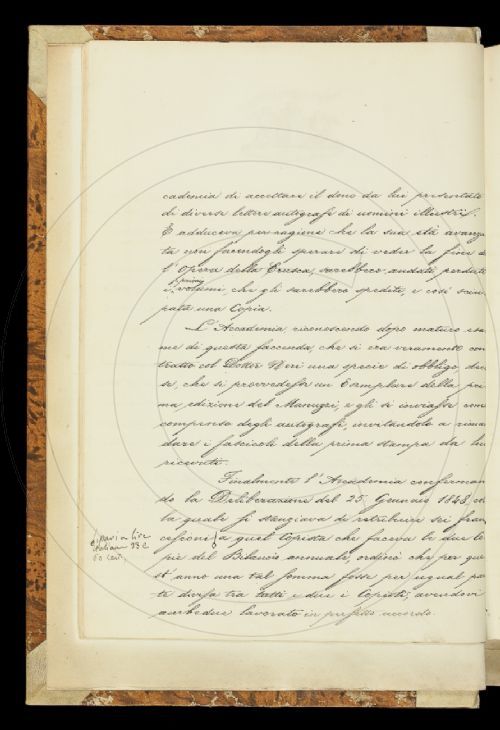 cademia di accettare il dono da lui presentato
di diverse lettere autografe di uomini illustri.
E adduceva per ragione che la sua età avanza
ta non facendogli sperare di veder la fine de
l'Opera della Crusca, sarebbero andati perduti
i primi volumi che gli sarebbero spediti, e così sciu
pata una Copia.
L'Accademia, riconoscendo dopo maturo esa
me di questa faccenda, che si era veramente con
tratto col Dottor Neri una specie di obbligo, deci
se, che si provvedesse un Esemplare della pri
ma edizione del Manuzzi, e gli si inviasse con
compenso degli autografi, invitandolo a riman
dare i fascicoli della prima stampa da lui
ricevuti.
Finalmente l'Accademia conferman
do la Deliberazione del 25 Gennaio 1848, con
la quale si stanziava di retribuire sei fran
cesconi a quel Copista che faceva le due Co
pie del Bilancio annuale, ordinò che per que
st'anno una tal somma fosse per ugual par
te divisa tra tutti e due i Copisti, avendovi
ambedue lavorato in perfetto accordo.
Lire
italiane 33 e
60 cent.